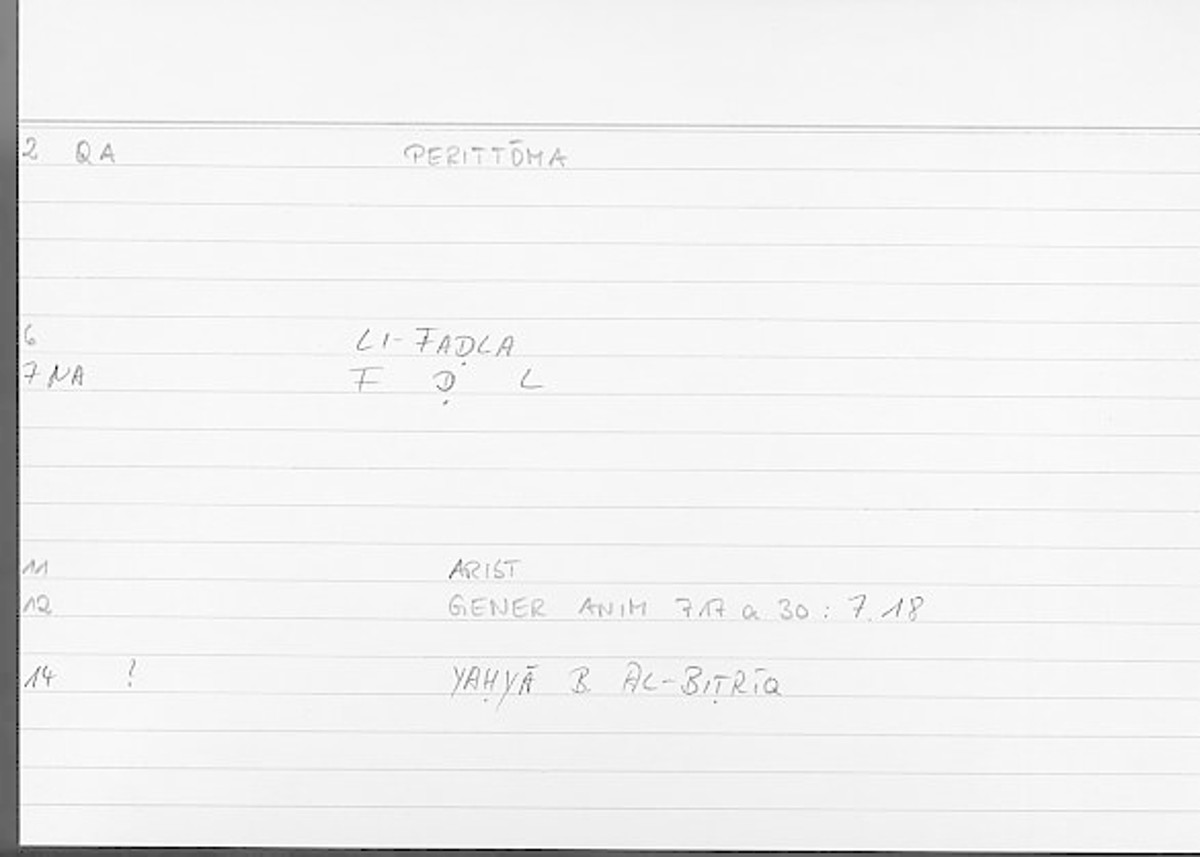 2 QA PERITTŌMA
6 LI-FAḌLA
7 NA F Ḍ L
11 ARIST
12 GENER ANIM 717 a 30 : 7.18
14 ? YAḤYĀ B. AL-BIṬRĪQ